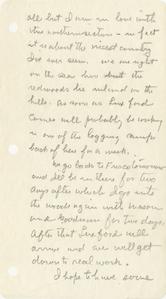 all but I am in love with
this northwestern - in fact
it is about the nicest country
I've ever seen. we are right
on the sea here about the
redwoods are inland on the
hills. as soon as Lux ford
comes will probably be working
in one of the logging camps
back of here for a week.
to go back to Frisco tomorrow
and I'll be in there for two
days after which I go into
the woods again with Mason
and for two days.
After that Lux ford will
arrive and we will get
down to real work.
I hope to have some